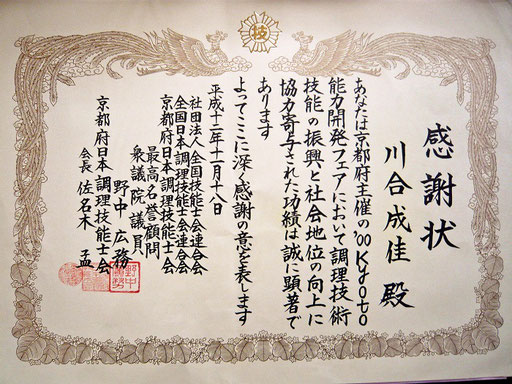 技
感謝状
川合成佳 殿
あなたは京都府主催の'00Kyoto
能力開発フェアにおいて調理技術
技能の振興と社会地位の向上に
協力寄与された功績は誠に顕著で
あります
よってここに深く感謝の意を表します
平成十二年十一月十八日
社団法人全国技能士会連合会
全国日本調理技能士会連合会
京都府日本調理技能士会
最高名誉顧問
衆議院議員
野中広務
京都府日本調理技能士会
会長 佐名木 孟